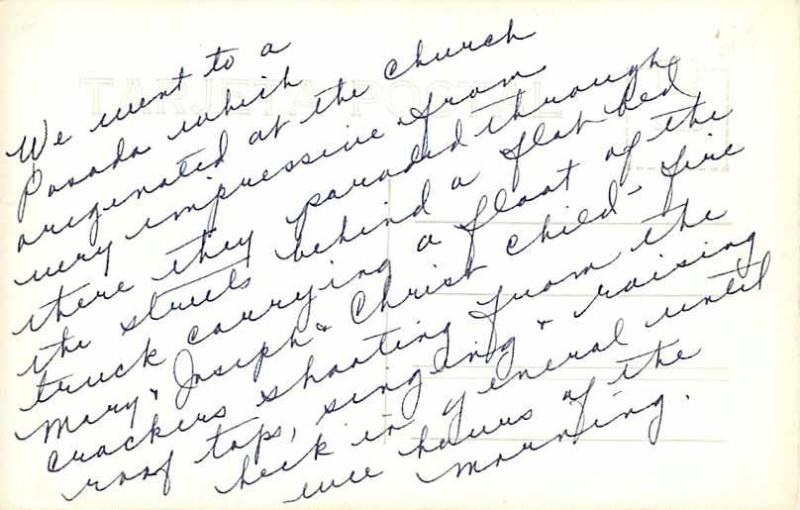 TARJETA POSTAL
We went to a
Posada which
originated at the church
very impressive from
there they paraded through
the streets behind a flat bed
truck carrying a float of the
Mary & Joseph & Christ Child - fire
crackers shooting from the
roof tops, singing & raising
heck in general until
wee hours of the
morning.